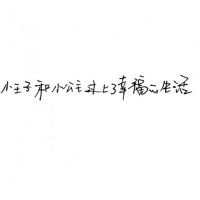 小王子和小公主过上了幸福的生活